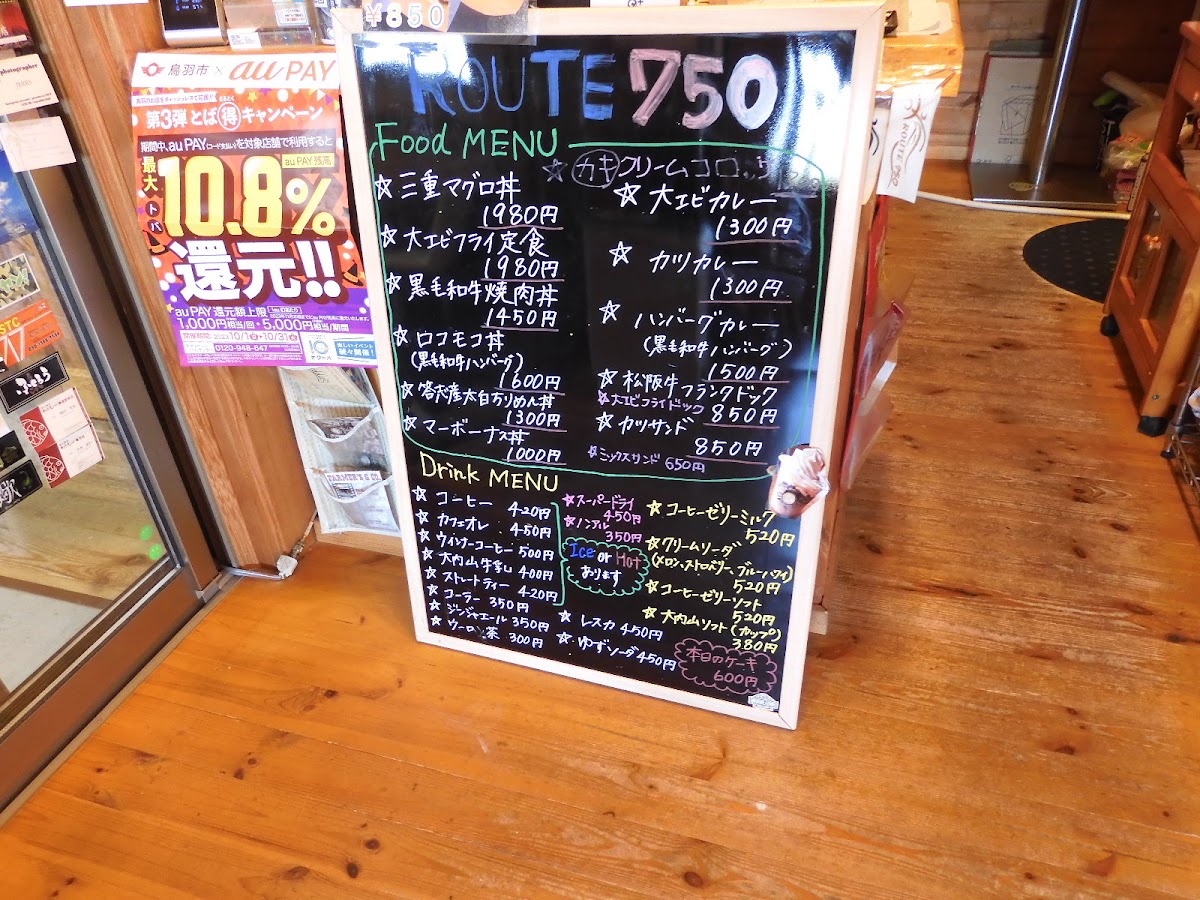 ¥850
ROUTE 750
Food MENU
☆カキクリームコロッケ
☆三重マグロ丼
1980円
☆大エビフライ定食
1980円
☆黒毛和牛焼肉丼
1450円
☆ロコモコ丼
(黒毛和牛ハンバーグ)
1600円
☆答志産太白ちりめん丼
1300円
☆マーボーナス丼
1000円
☆大エビカレー
1300円
☆カツカレー
1300円
☆ハンバーグカレー
(黒毛和牛ハンバーグ)
1500円
☆松阪牛フランクドック
☆大エビフライドック 850円
☆カツサンド
850円
☆ミックスサンド 650円
Drink MENU
☆コーヒー 420円
☆カフェオレ 450円
☆ウインナーコーヒー 500円
☆大内山牛乳 400円
☆ストレートティー 420円
☆コーラー 350円
☆ジンジャエール 350円
☆ウーロン茶 300円
☆スーパードライ
450円
☆ノンアル
350円
Ice or Hot
あります
☆レスカ 450円
☆ゆずソーダ 450円
☆コーヒーゼリーミルク
520円
☆クリームソーダ
(メロン、ストロベリー、ブルーハワイ)
520円
☆コーヒーゼリーソフト
520円
☆大内山ソフト(カップ)
380円
本日のケーキ
600円
鳥羽市×au PAY
第3弾とば得キャンペーン
とく
期間中、au PAY(コード支払い)を対象店舗で利用すると
最大
トバ
au PAY残高
10.8%
還元!!
au PAY還元額上限
1,000円相当/回・5,000円相当/期間
10/1 10/31
0120-948-647
続々開催!
photographer
FARMER'S CO.
ROUTE